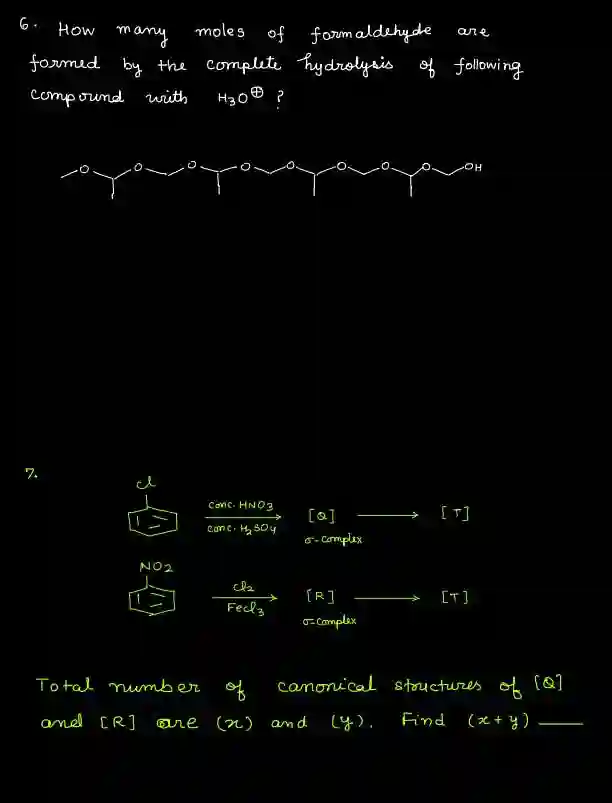 6. How many moles of formaldehyde are
formed by the complete hydrolysis of following
compound with H3O⊕ ?
O O O O O O O O O OH
7.
Cl
conc. HNO3
conc. H2SO4
[Q]
σ-complex
[T]
NO2
Cl2
FeCl3
[R]
σ-complex
[T]
Total number of canonical structures of [Q]
and [R] are (x) and (y). Find (x+y) ____